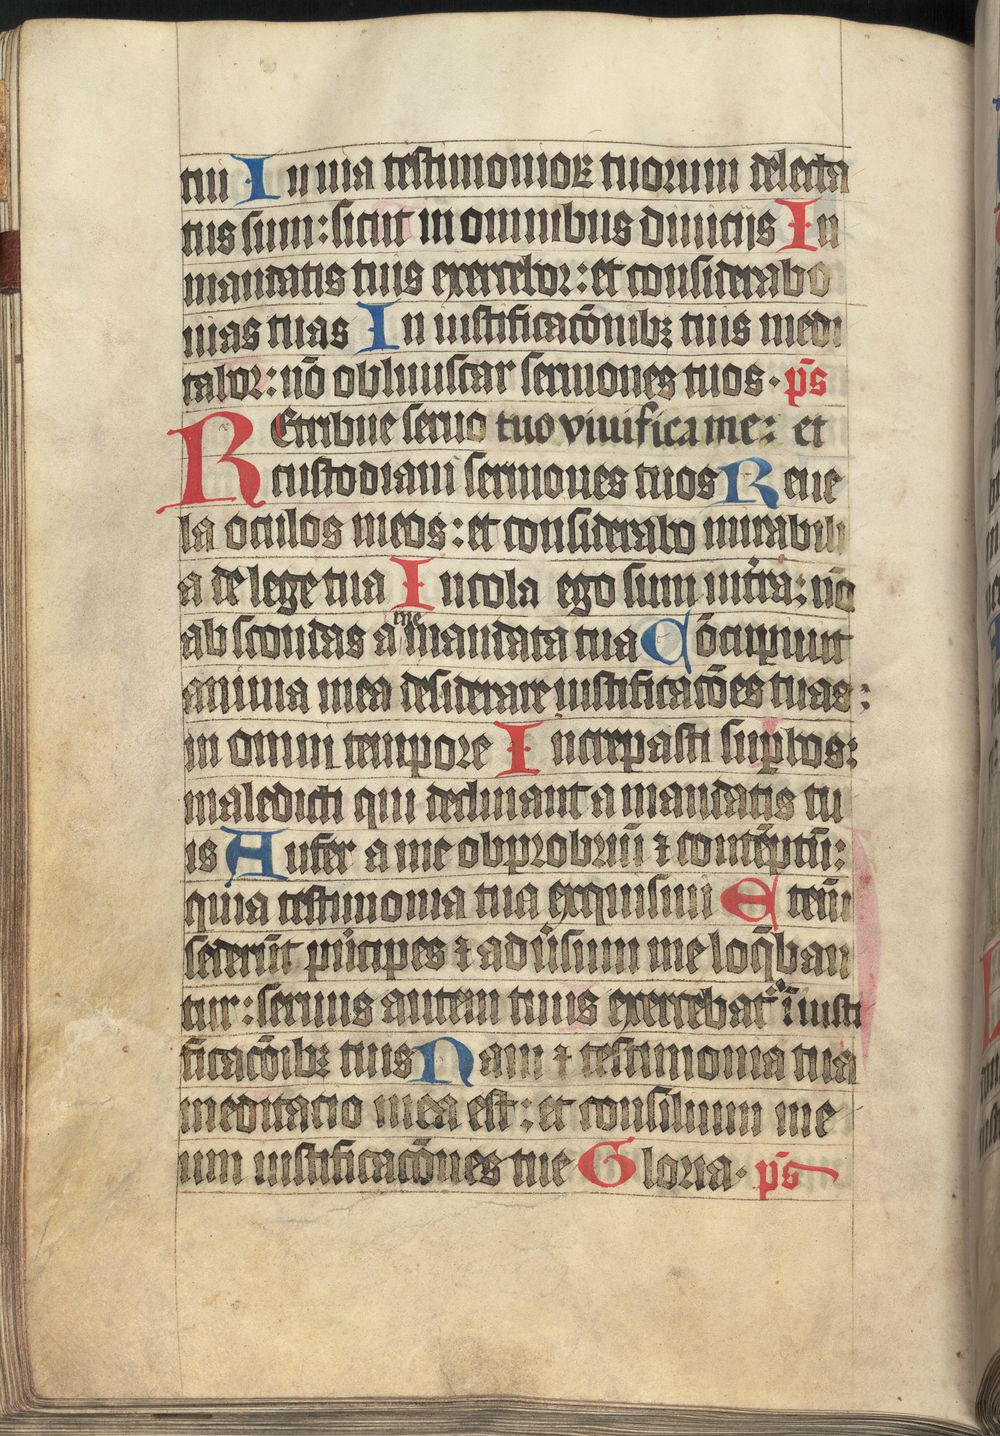 tui In uia testimonioꝝ tuorum delecta
tus sum: sicut in omnibus diuicijs In
mandatis tuis exercebor: et considerabo
uias tuas In iustificacōnibꝫ tuis medi
tabor: nō obliuiscar sermones tuos. p̄s
REtribue seruo tuo viuifica me: et
custodiam sermones tuos Reue
la oculos meos: et considerabo mirabili
a de lege tua Incola ego sum in tr̄a: nō
abscondas a me mandata tua Cōcupiuit
anima mea desiderare iustificacōes tuas:
in omni tempore Increpasti suꝑbos:
maledicti qui declinant a mandatis tu
is Aufer a me obprobriū ⁊ contēptū:
quia testimonia tua exquisiui Etenī
sederūt pͥncipes ⁊ adūsum me loq̄ban
tur: seruus autem tuus exercebatͬ ī iusti
ficacōibꝫ tuis Nam ⁊ testimonia tua
meditacio mea est: et consilium me
um iustificacōnes tue Gloria. p̄s